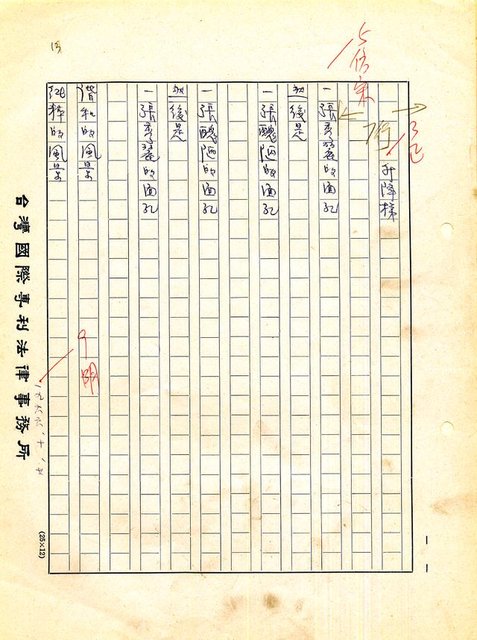 13
5仿宋
7行
升降梯
一張秀麗的面孔
然後是
一張醜陋的面孔
一張醜陋的面孔
然後是
一張秀麗的面孔
諧和的風景
純粹的風景
9明
台灣國際專利法律事務所
(25×12)